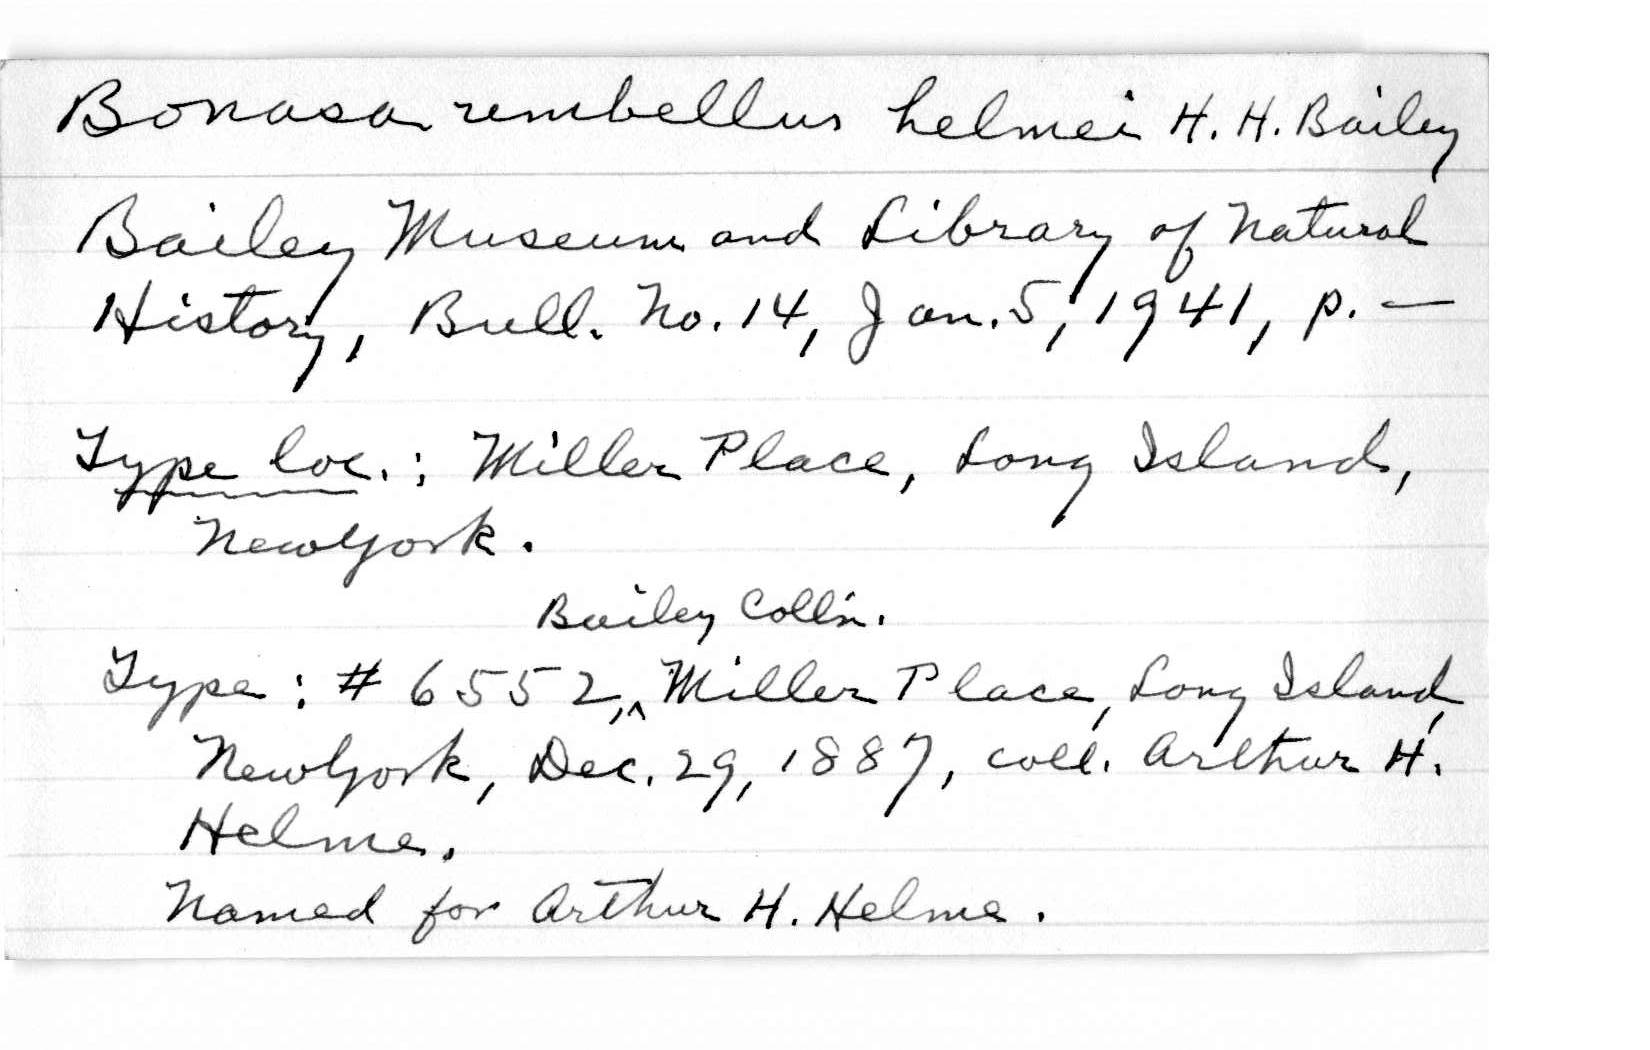 Bonasa umbellus helmei H. H. Bailey
Bailey Museum and Library of Natural
History, Bull. No. 14, Jan. 5, 1941, p. —
Type loc.: Miller Place, Long Island,
New York.
Bailey Coll'n.
Type: # 6552,^ Miller Place, Long Island,
New York, Dec. 29, 1887, coll. Arthur H.
Helme.
Named for Arthur H. Helme.